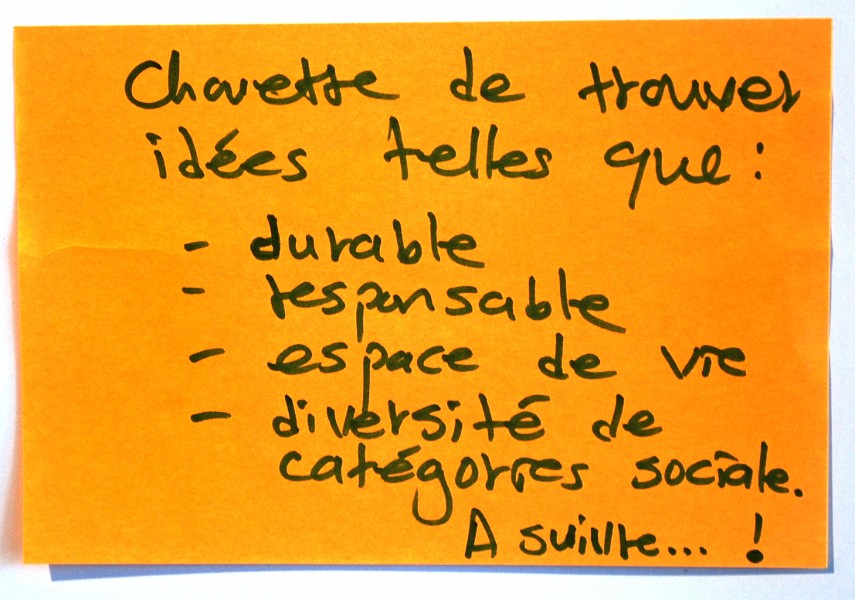 Chouette de trouver
idées telles que :
- durable
- responsable
- espace de vie
- diversité de
catégories sociale.
A suivre... !